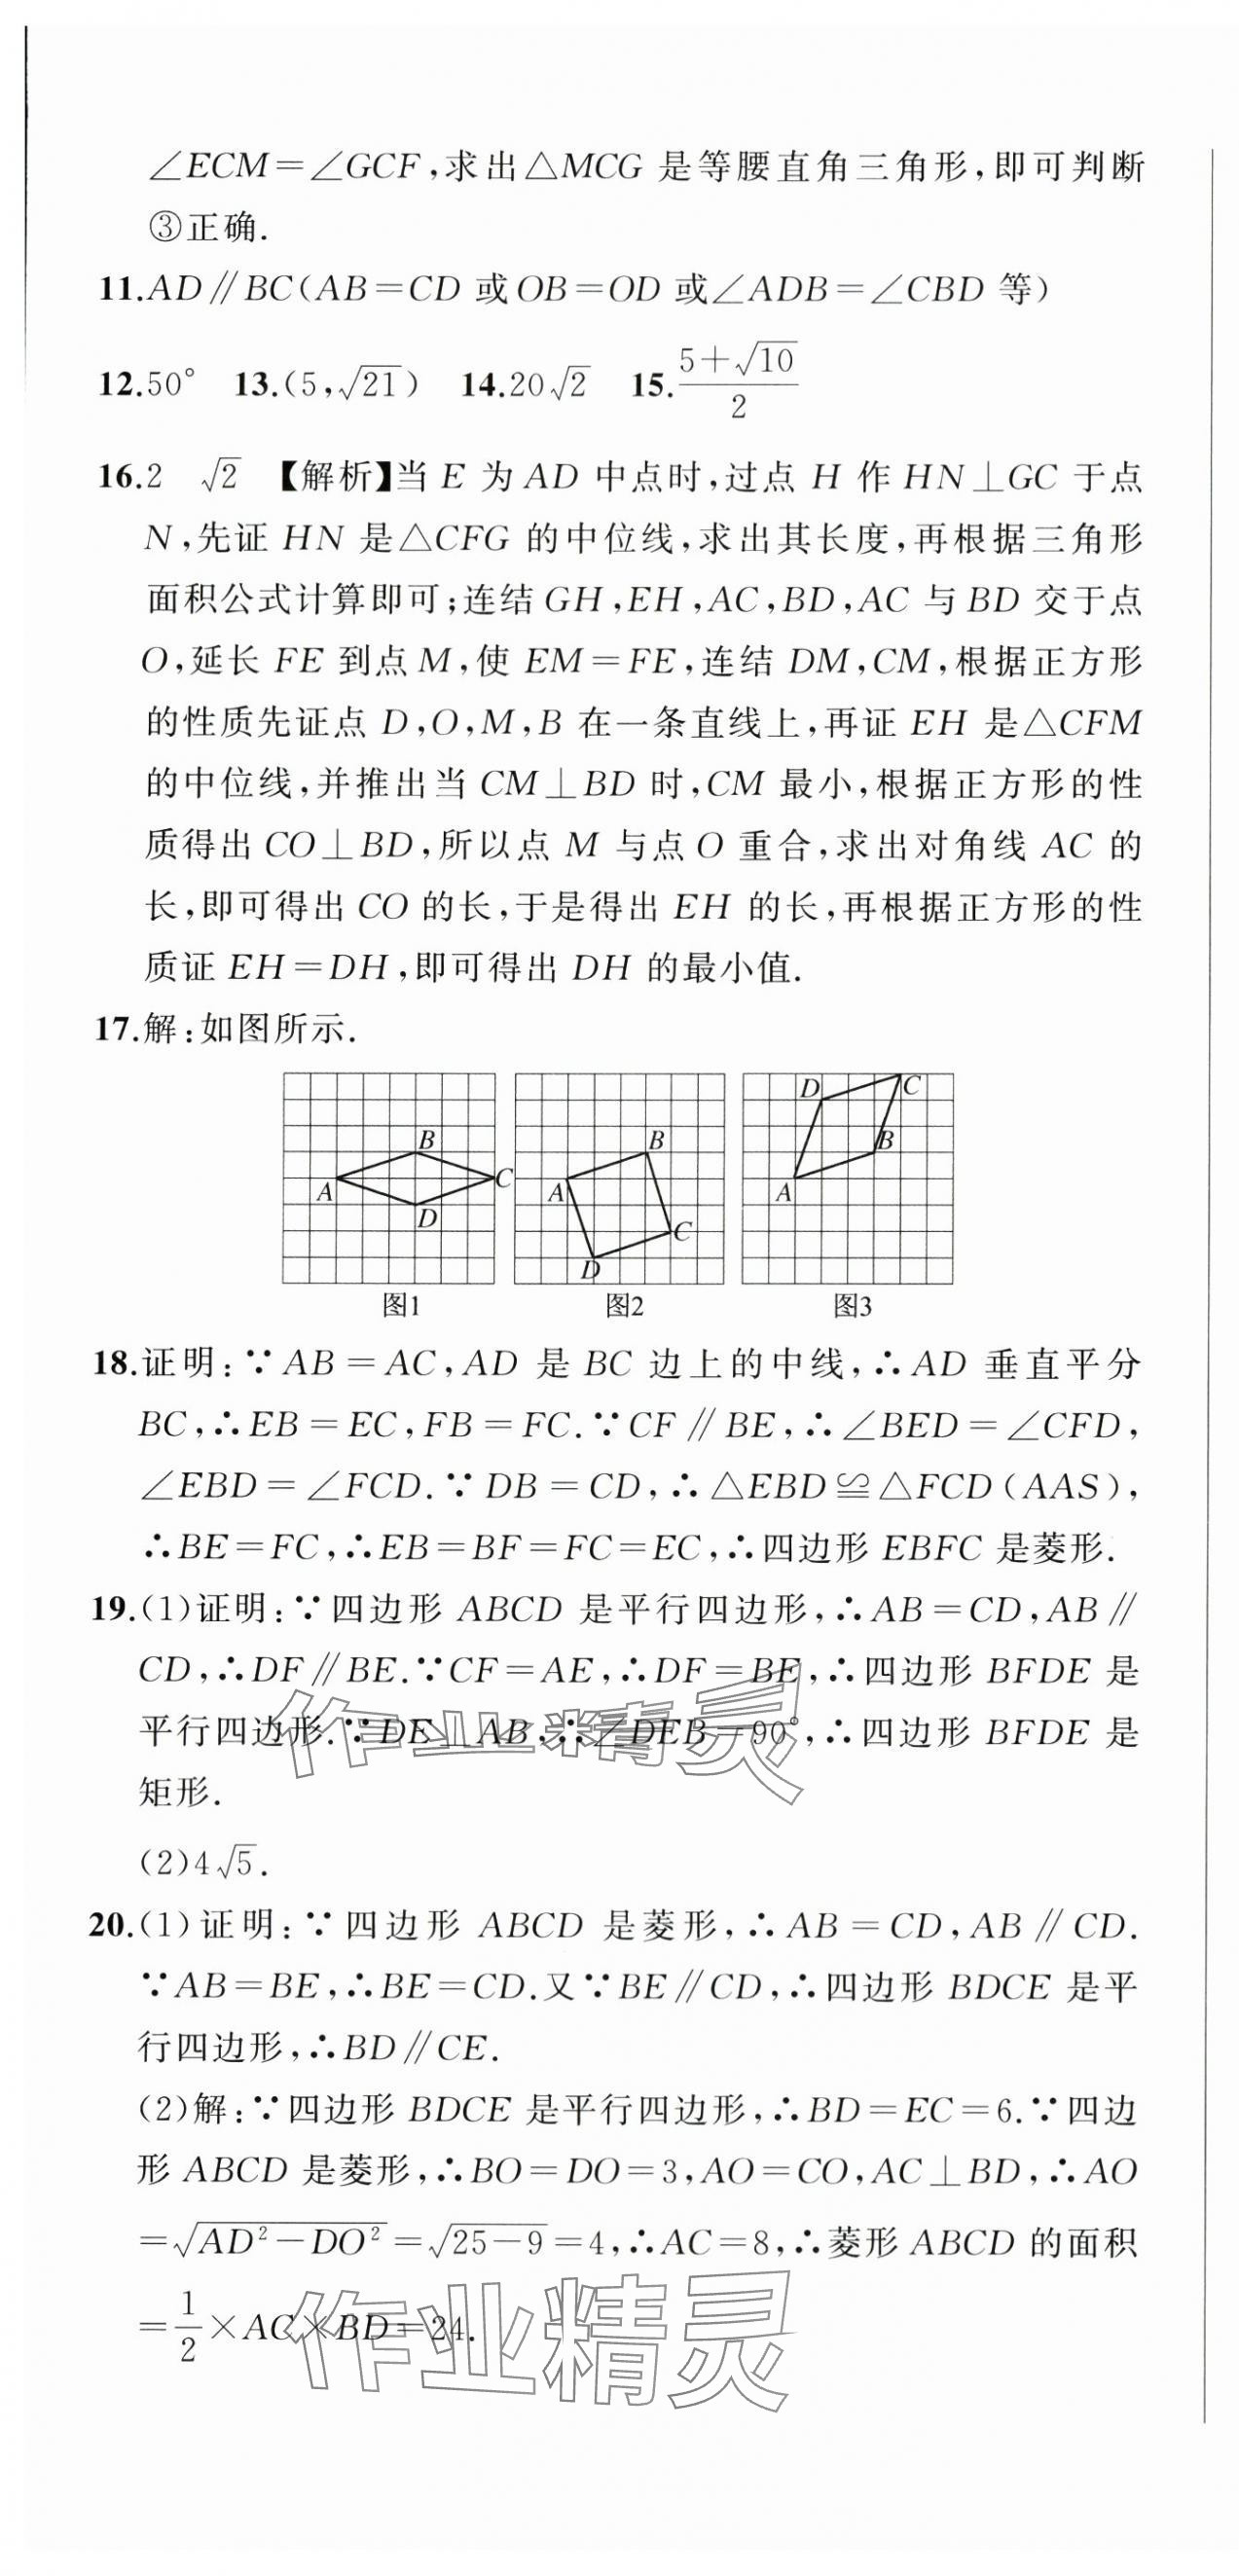 ∠ECM=∠GCF,求出△MCG 是等腰直角三角形,即可判断
③正确.
11.AD∥BC(AB=CD 或 OB=OD 或∠ADB=∠CBD 等)
12.50° 13.(5,√21) 14.20√2 15.(5+√10)/2
16.2 √2 【解析】当 E 为 AD 中点时,过点 H 作 HN⊥GC 于点
N,先证 HN 是△CFG 的中位线,求出其长度,再根据三角形
面积公式计算即可;连结 GH,EH,AC,BD,AC 与 BD 交于点
O,延长 FE 到点 M,使 EM=FE,连结 DM,CM,根据正方形
的性质先证点 D,O,M,B 在一条直线上,再证 EH 是△CFM
的中位线,并推出当 CM⊥BD 时,CM 最小,根据正方形的性
质得出 CO⊥BD,所以点 M 与点 O 重合,求出对角线 AC 的
长,即可得出 CO 的长,于是得出 EH 的长,再根据正方形的性
质证 EH=DH,即可得出 DH 的最小值.
17.解:如图所示.
A B C D
A B C D
A B C D
图1 图2 图3
18.证明:∵AB=AC,AD 是 BC 边上的中线,∴AD 垂直平分
BC,∴EB=EC,FB=FC.∵CF∥BE,∴∠BED=∠CFD,
∠EBD=∠FCD.∵DB=CD,∴△EBD≌△FCD(AAS),
∴BE=FC,∴EB=BF=FC=EC,∴四边形 EBFC 是菱形.
19.(1)证明:∵四边形 ABCD 是平行四边形,∴AB=CD,AB∥
CD,∴DF∥BE.∵CF=AE,∴DF=BE,∴四边形 BFDE 是
平行四边形.∵DE⊥AB,∴∠DEB=90°,∴四边形 BFDE 是
矩形.
(2)4√5.
20.(1)证明:∵四边形 ABCD 是菱形,∴AB=CD,AB∥CD.
∵AB=BE,∴BE=CD.又∵BE∥CD,∴四边形 BDCE 是平
行四边形,∴BD∥CE.
(2)解:∵四边形 BDCE 是平行四边形,∴BD=EC=6.∵四边
形 ABCD 是菱形,∴BO=DO=3,AO=CO,AC⊥BD,∴AO
=√(AD²-DO²)=√(25-9)=4,∴AC=8,∴菱形 ABCD 的面积
=1/2×AC×BD=24.
作业精灵
作业精灵